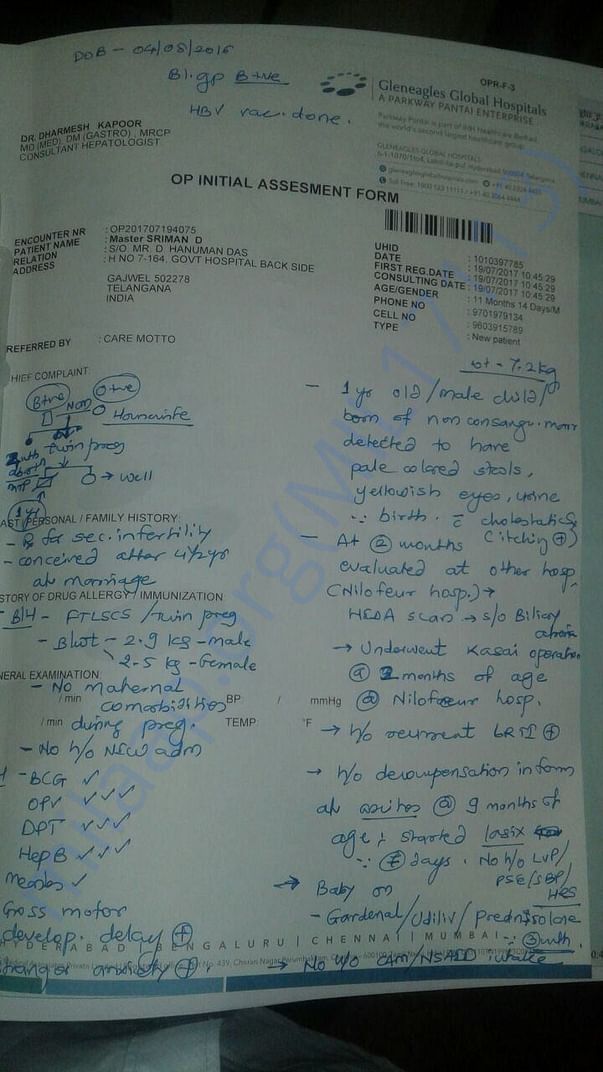 DOB - 04/08/2016
Bl. gp B+ve
HBV vac. done.
OPR-F-3
Gleneagles Global Hospitals
A PARKWAY PANTAI ENTERPRISE
Parkway Pantai is part of IHH Healthcare Berhad
the world's second largest healthcare group.
GLENEAGLES GLOBAL HOSPITALS
DR. DHARMESH KAPOOR
MD (MED), DM (GASTRO), MRCP
CONSULTANT HEPATOLOGIST
OP INITIAL ASSESMENT FORM
ENCOUNTER NR : OP201707194075
PATIENT NAME : Master SRIMAN D
RELATION : S/O. MR. D HANUMAN DAS
ADDRESS : H NO 7-164, GOVT HOSPITAL BACK SIDE
GAJWEL 502278
TELANGANA
INDIA
UHID : 1010397785
DATE : 19/07/2017 10:45:29
FIRST REG.DATE : 19/07/2017 10:45:29
CONSULTING DATE : 19/07/2017 10:45:29
AGE/GENDER : 11 Months 14 Days/M
PHONE NO : 9701979134
CELL NO : 9603915789
TYPE : New patient
REFERRED BY : CARE MOTTO
wt - 7.2 kg
HIEF COMPLAINT:
B+ve
NCM
O+ve
Housewife
twin preg
→ well
1 yr
AST /PERSONAL / FAMILY HISTORY:
- Rx for sec. infertility
- conceived after 4 1/2 yr
of marriage
STORY OF DRUG ALLERGY / IMMUNIZATION:
- B/H - FTLSCS / Twin preg
- B.wt - 2.9 kg - male
2.5 kg - female
NERAL EXAMINATION:
- No maternal
comorbidities
during preg.
/ min BP / mmHg
/ min TEMP: °F
- No h/o NICU adm
- BCG ✓
OPV ✓✓✓
DPT ✓✓✓
Hep B ✓✓✓
Measles ✓
Gross motor
develop. delay ⊕
stranger anxiety ⊕
- 1 yr old / male child /
born of non consangu. marr
detected to have
pale colored stools,
yellowish eyes, urine
∵ birth. c̄ cholestasis
(itching ⊕)
- At ② months
evaluated at other hosp
(Nilofeur hosp.) →
HIDA scan → s/o Biliary
atresia
→ Underwent Kasai operation
@ 2 months of age
@ Nilofeur hosp.
→ h/o recurrent LRTI ⊕
→ h/o decompensation in form
of ascites @ 9 months of
age; started lasix
∵ ⑦ days. No h/o LVP/
PSE/SBP/
HRS
→ Baby on
- Gardenal/Udiliv/Prednisolone
∵ ③ mth.
→ No h/o CAM/NSAID intake
HYDERABAD | BENGALURU | CHENNAI | MUMBAI